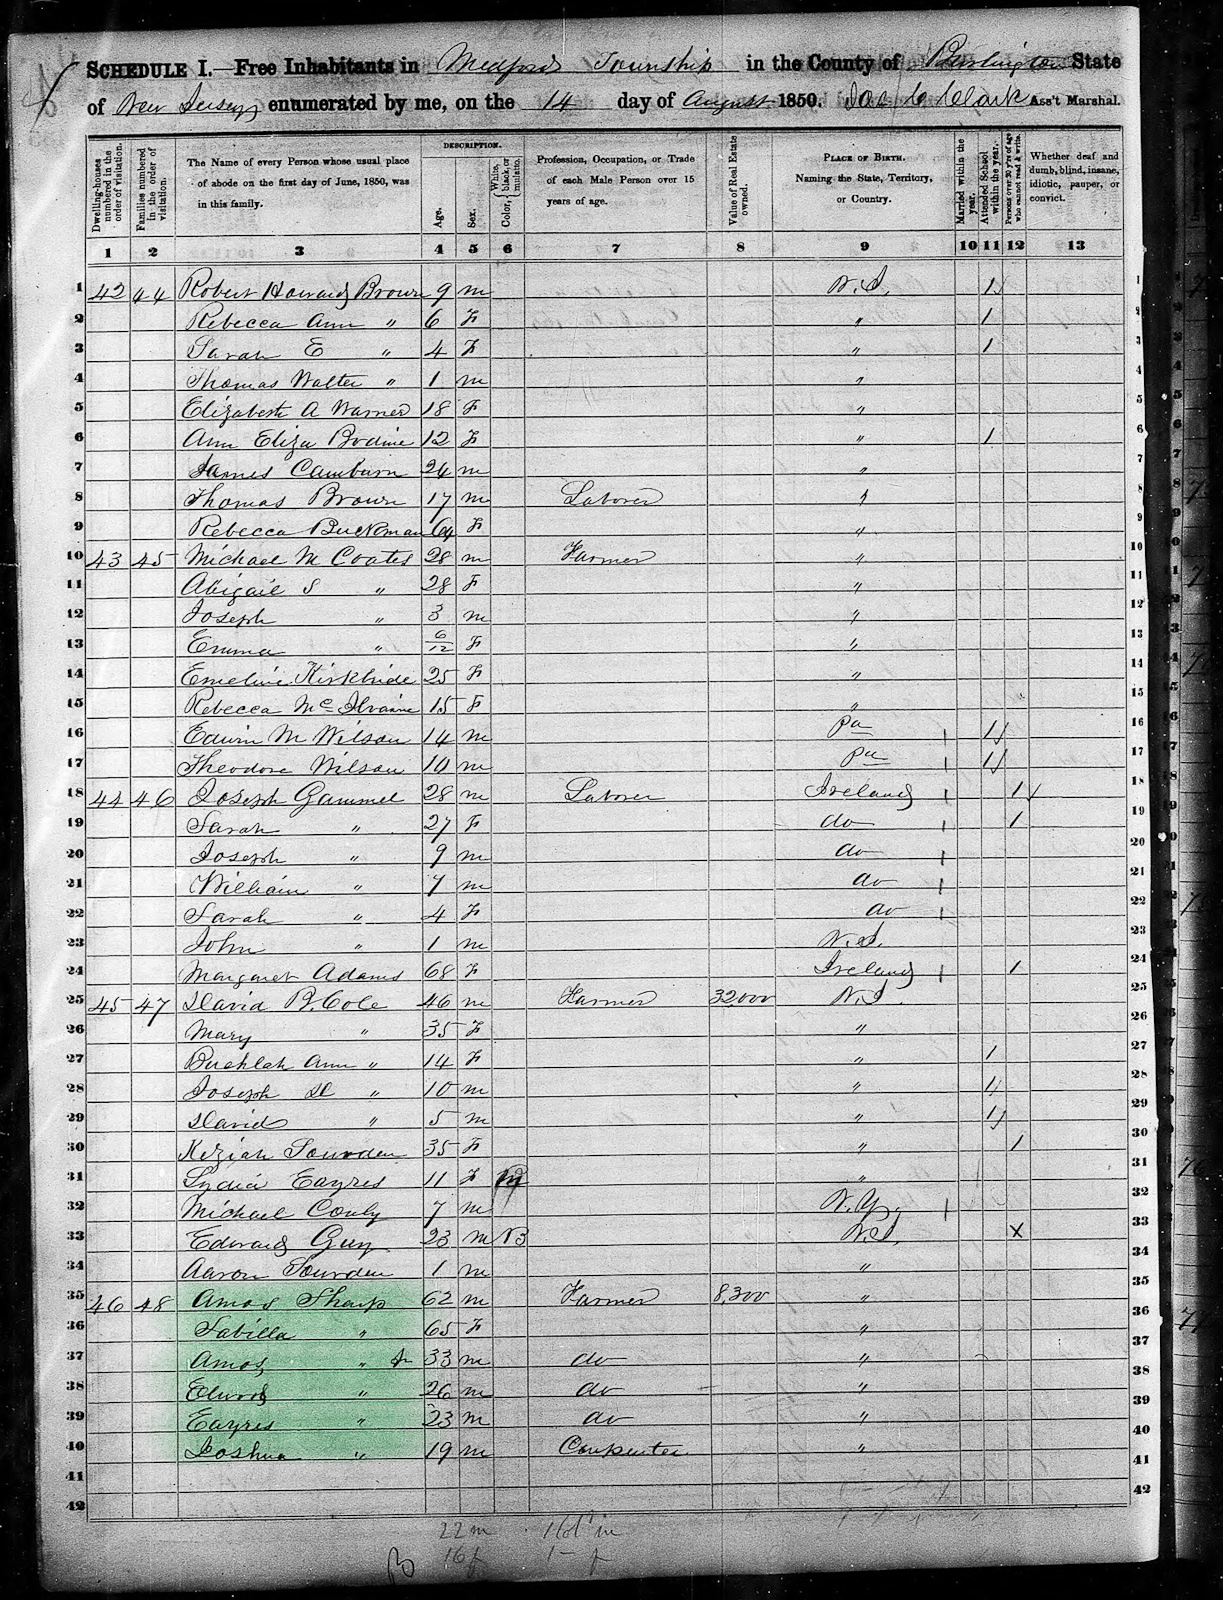 SCHEDULE I.—Free Inhabitants in Medford Township in the County of Burlington State
of New Jersey enumerated by me, on the 14 day of August 1850. Clark Ass't Marshal.
Dwelling-houses numbered in the order of visitation.
Families numbered in the order of visitation.
The Name of every Person whose usual place of abode on the first day of June, 1850, was in this family.
DESCRIPTION.
Age.
Sex.
Color, White, black, or mulatto.
Profession, Occupation, or Trade of each Male Person over 15 years of age.
Value of Real Estate owned.
PLACE OF BIRTH. Naming the State, Territory, or Country.
Married within the year.
Attended School within the year.
Persons over 20 y'rs of age who cannot read & write.
Whether deaf and dumb, blind, insane, idiotic, pauper, or convict.
1 2 3 4 5 6 7 8 9 10 11 12 13
1 42 44 Robert Howard Brown 9 m N.J. 1 1
2 Rebecca Ann " 6 F " 1 2
3 Sarah E " 4 F " 1 3
4 Thomas Walter " 1 m " 4
5 Elizabeth A Warner 18 F " 5
6 Ann Eliza Bodine 12 F " 1 6
7 James Camburn 24 m " 7
8 Thomas Brown 17 m Laborer " 8
9 Rebecca Buckman 64 F " 9
10 43 45 Michael M Coates 28 m Farmer " 10
11 Abigail S " 28 F " 11
12 Joseph " 3 m " 12
13 Emma " 6/12 F " 13
14 Emeline Kirkbride 25 F " 14
15 Rebecca Mc Ilvaine 15 F " 15
16 Edwin M Wilson 14 m Pa 1 1 16
17 Theodore Wilson 10 m Pa 1 1 17
18 44 46 Joseph Gammel 28 m Laborer Ireland 1 1 18
19 Sarah " 27 F do 1 1 19
20 Joseph " 9 m do 1 20
21 William " 7 m do 1 21
22 Sarah " 4 F do 1 22
23 John " 1 m N.J. 23
24 Margaret Adams 68 F Ireland 1 1 24
25 45 47 David B. Cole 46 m Farmer 32,000 N.J. 25
26 Mary " 35 F " 26
27 Buehlah Ann " 14 F " 1 27
28 Joseph D " 10 m " 1 28
29 David " 5 m " 1 29
30 Keziah Sourden 35 F " 1 30
31 Lydia Eayres 11 F M " 31
32 Michael Conly 7 m N.Y. 1 32
33 Edward Guy 23 m B N.J. X 33
34 Aaron Sourden 1 m " 34
35 46 48 Amos Sharp 62 m Farmer 8,300 " 35
36 Sabilla " 65 F " 36
37 Amos " Jr 33 m do " 37
38 Edward " 26 m do " 38
39 Eayres " 23 m do " 39
40 Joshua " 19 m Carpenter " 40
41 41
42 42
22 m
16 f